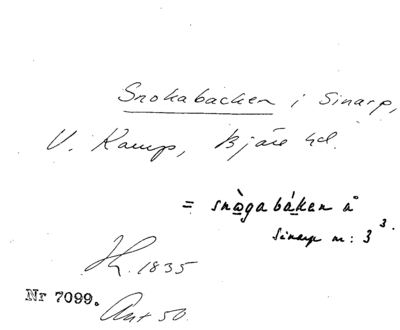 Snokabacken i Sinarp,
V. Karup, Bjäre hd.
= snògabáken å
Sinarp n: 3 3.
1835
Nr 7099.
Ant 50.